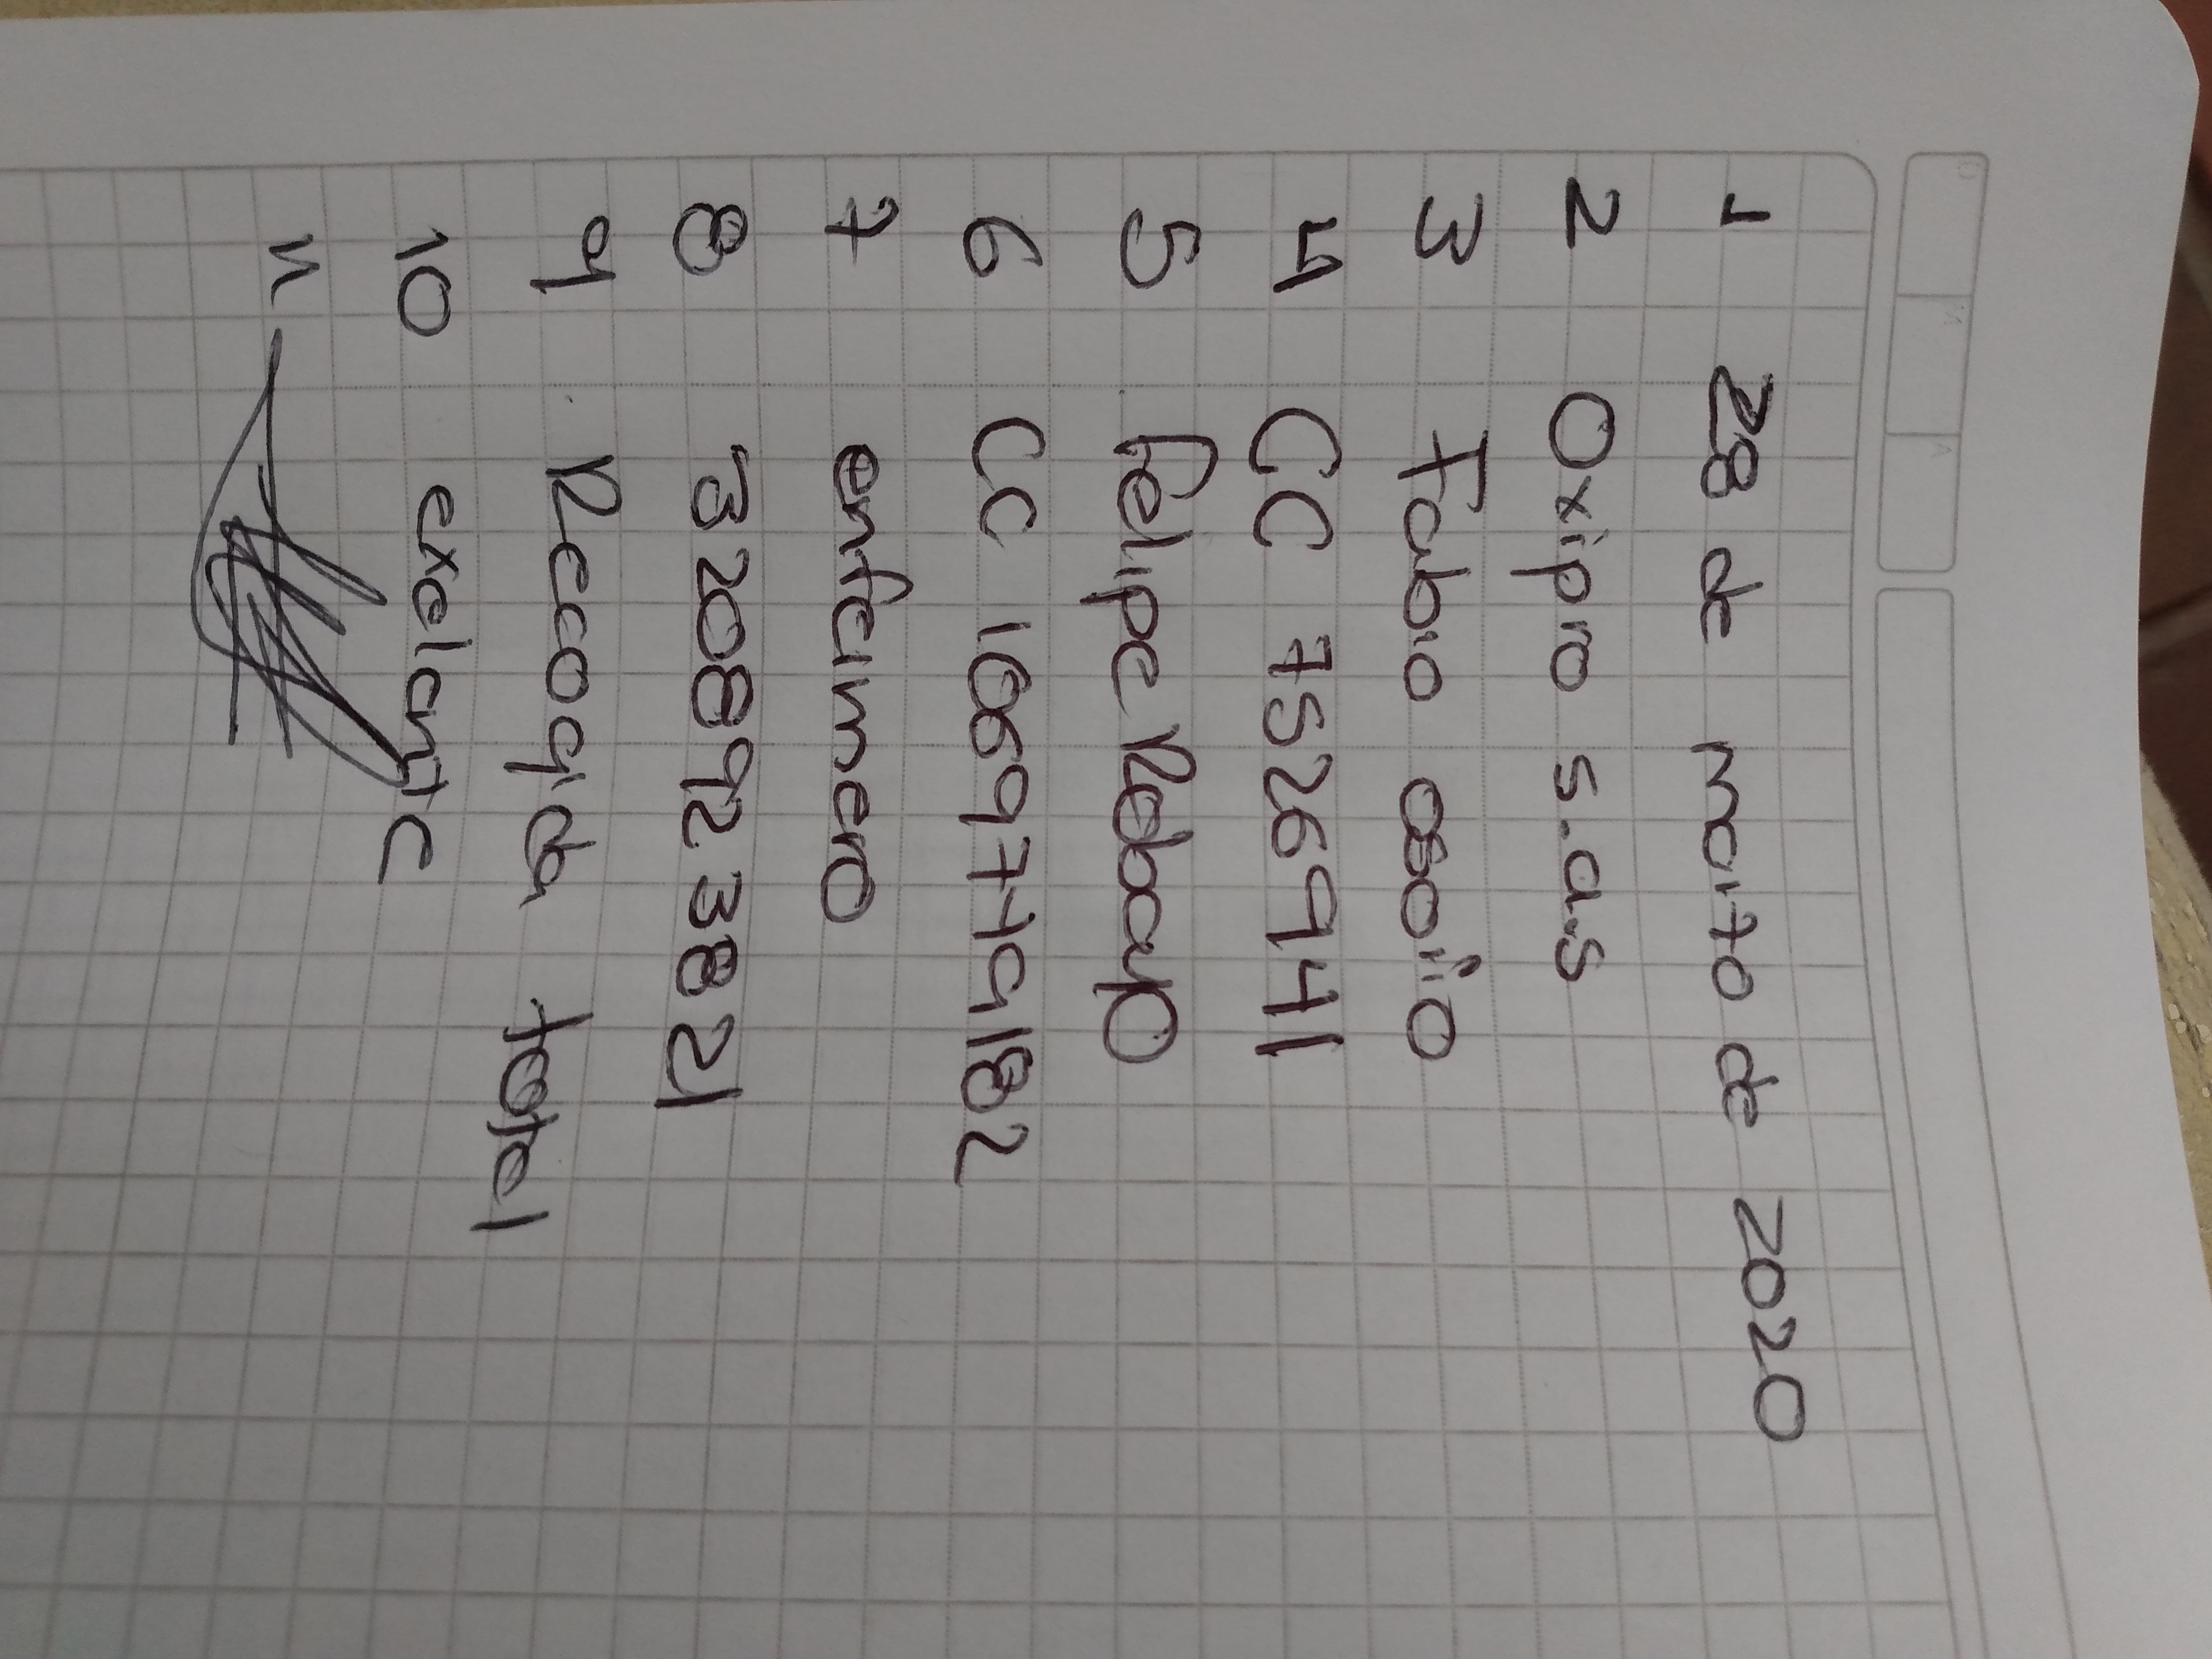 1 28 de marzo de 2020
2 Oxipro s.a.s
3 Fabio osorio
4 CC 7526941
5 felipe Robayo
6 CC 1069749182
7 enfermero
8 3208923821
9 Recogida total
10 exelante
11